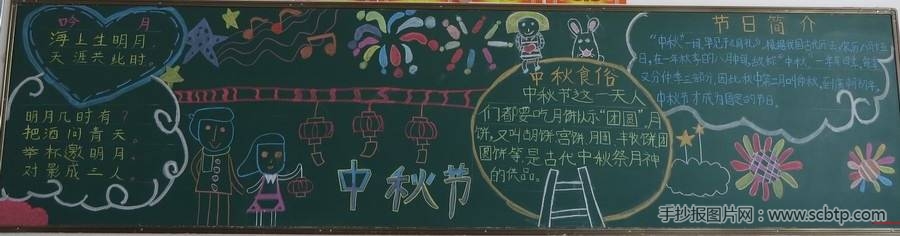 吟 月
海上生明月,
天涯共此时
明月几时有?
把酒问青天。
举杯邀明月。
对影成三人。
中秋节
中秋食俗
中秋节这一天人
们都要吃月饼以示“团圆”月
饼,又叫胡饼、宫饼、月团、丰收饼、团
圆饼等,是古代中秋祭月神
的供品。
节日简介
“中秋”一词,早见于《周礼》,根据我国古代历法,农历八月十五
日,在一年秋季的八月中旬,故称“中秋”。一年有四季,每季
又分
三部分,因此秋中第二月叫仲秋,
中秋节才成为固定的节日。
手抄报图片网:www.scbtp.com